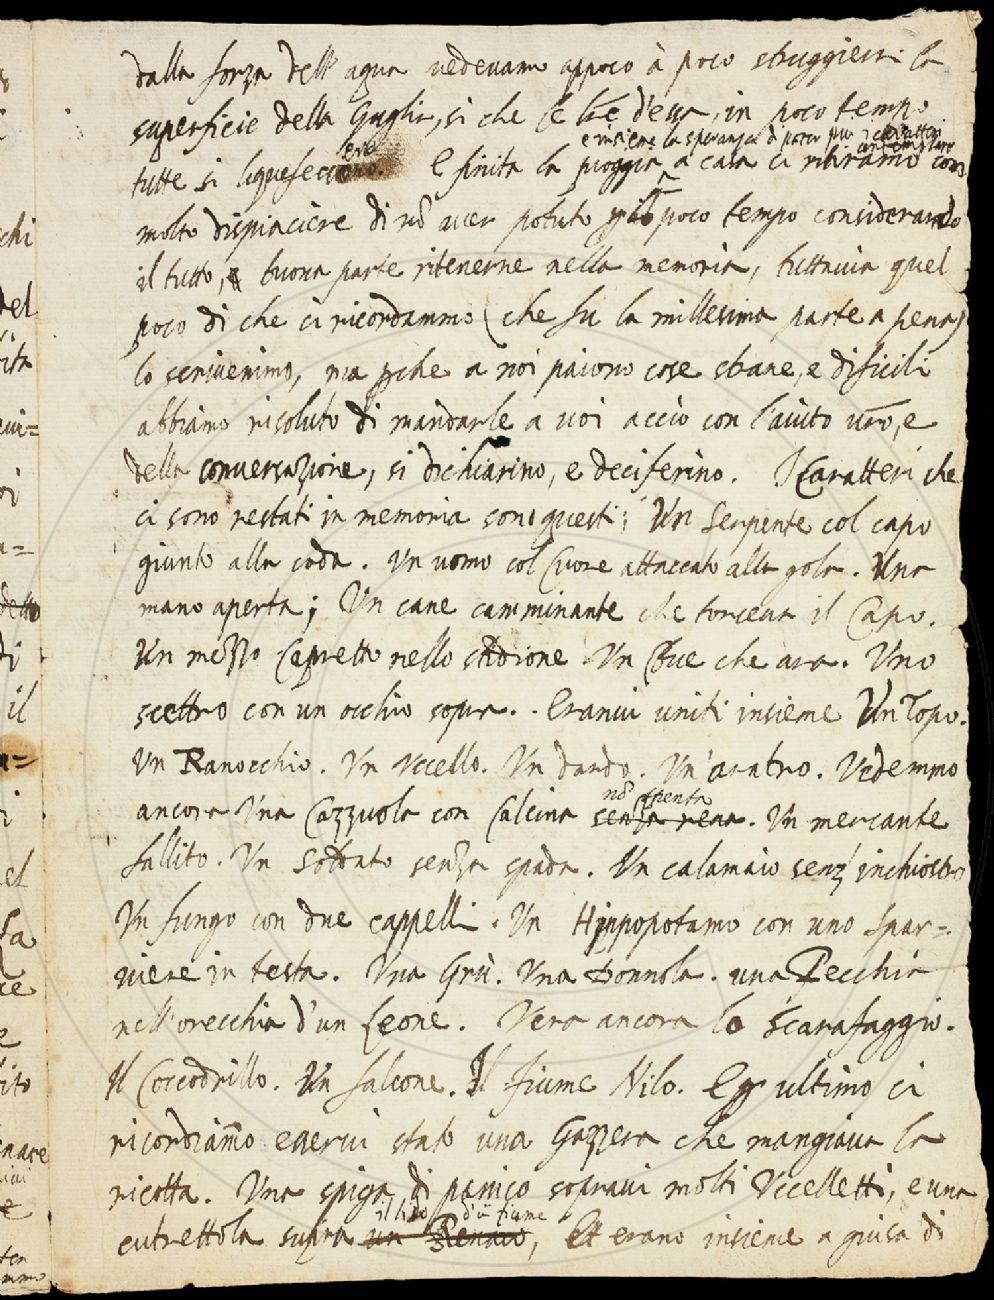 dalla forza dell' aqua vedevamo appoco à poco struggiersi la
superficie della Guglia, si che le lre d'essa, in poco tempo
e insieme la speranza di poter più i caratteri
contemplare
tutte si liquefecero. E finita la pioggia a casa ci ritiramo con
molto dispiacere di nõ aver potuto in poco tempo considerando
il tutto, e buona parte ritenerne nella memoria, tuttavia quel
poco di che ci ricordammo (che fu la millesima parte a pena)
lo scrivemmo, ma pche a noi paiono cose strane, e dificili
abbiamo risoluto di mandarle a voi acciò con l'aiuto vro, e
della conversazione, si dichiarino, e deciferino. I Caratteri che
ci sono restati in memoria sono questi; Un Serpente col capo
giunto alla coda. Un uomo col Cuore attaccato alla gola. Una
mano aperta; Un cane camminante che torceva il Capo.
Un mezzo Capretto nello stidione Un Bue che ara. Uno
scettro con un occhio sopra. Eranvi uniti insieme Un Topo.
Un Ranocchio. Un Uccello. Un dardo. Un' aratro. Vedemmo
nõ spenta
ancora Una Cazzuola con Calcina senza rena. Un mercante
fallito. Un Soldato senza spada. Un calamaio senz' inchiostro
Un fungo con due cappelli. Un Hippopotamo con uno Spar=
viere in testa. Una Grù. Una Donnola. una Pecchia
nell'orecchia d'un Leone. V'era ancora lo Scarafaggio.
Il Coccodrillo. Un falcone. Il fiume Nilo. E p ultimo ci
ricordiamo esservi stato una Gazzera che mangiava la
ricotta. Una spiga di panico sopravi molti Uccelletti, e una
il lido d'ũ fiume
cutrettola sopra un Renaio, Et erano insieme a guisa di